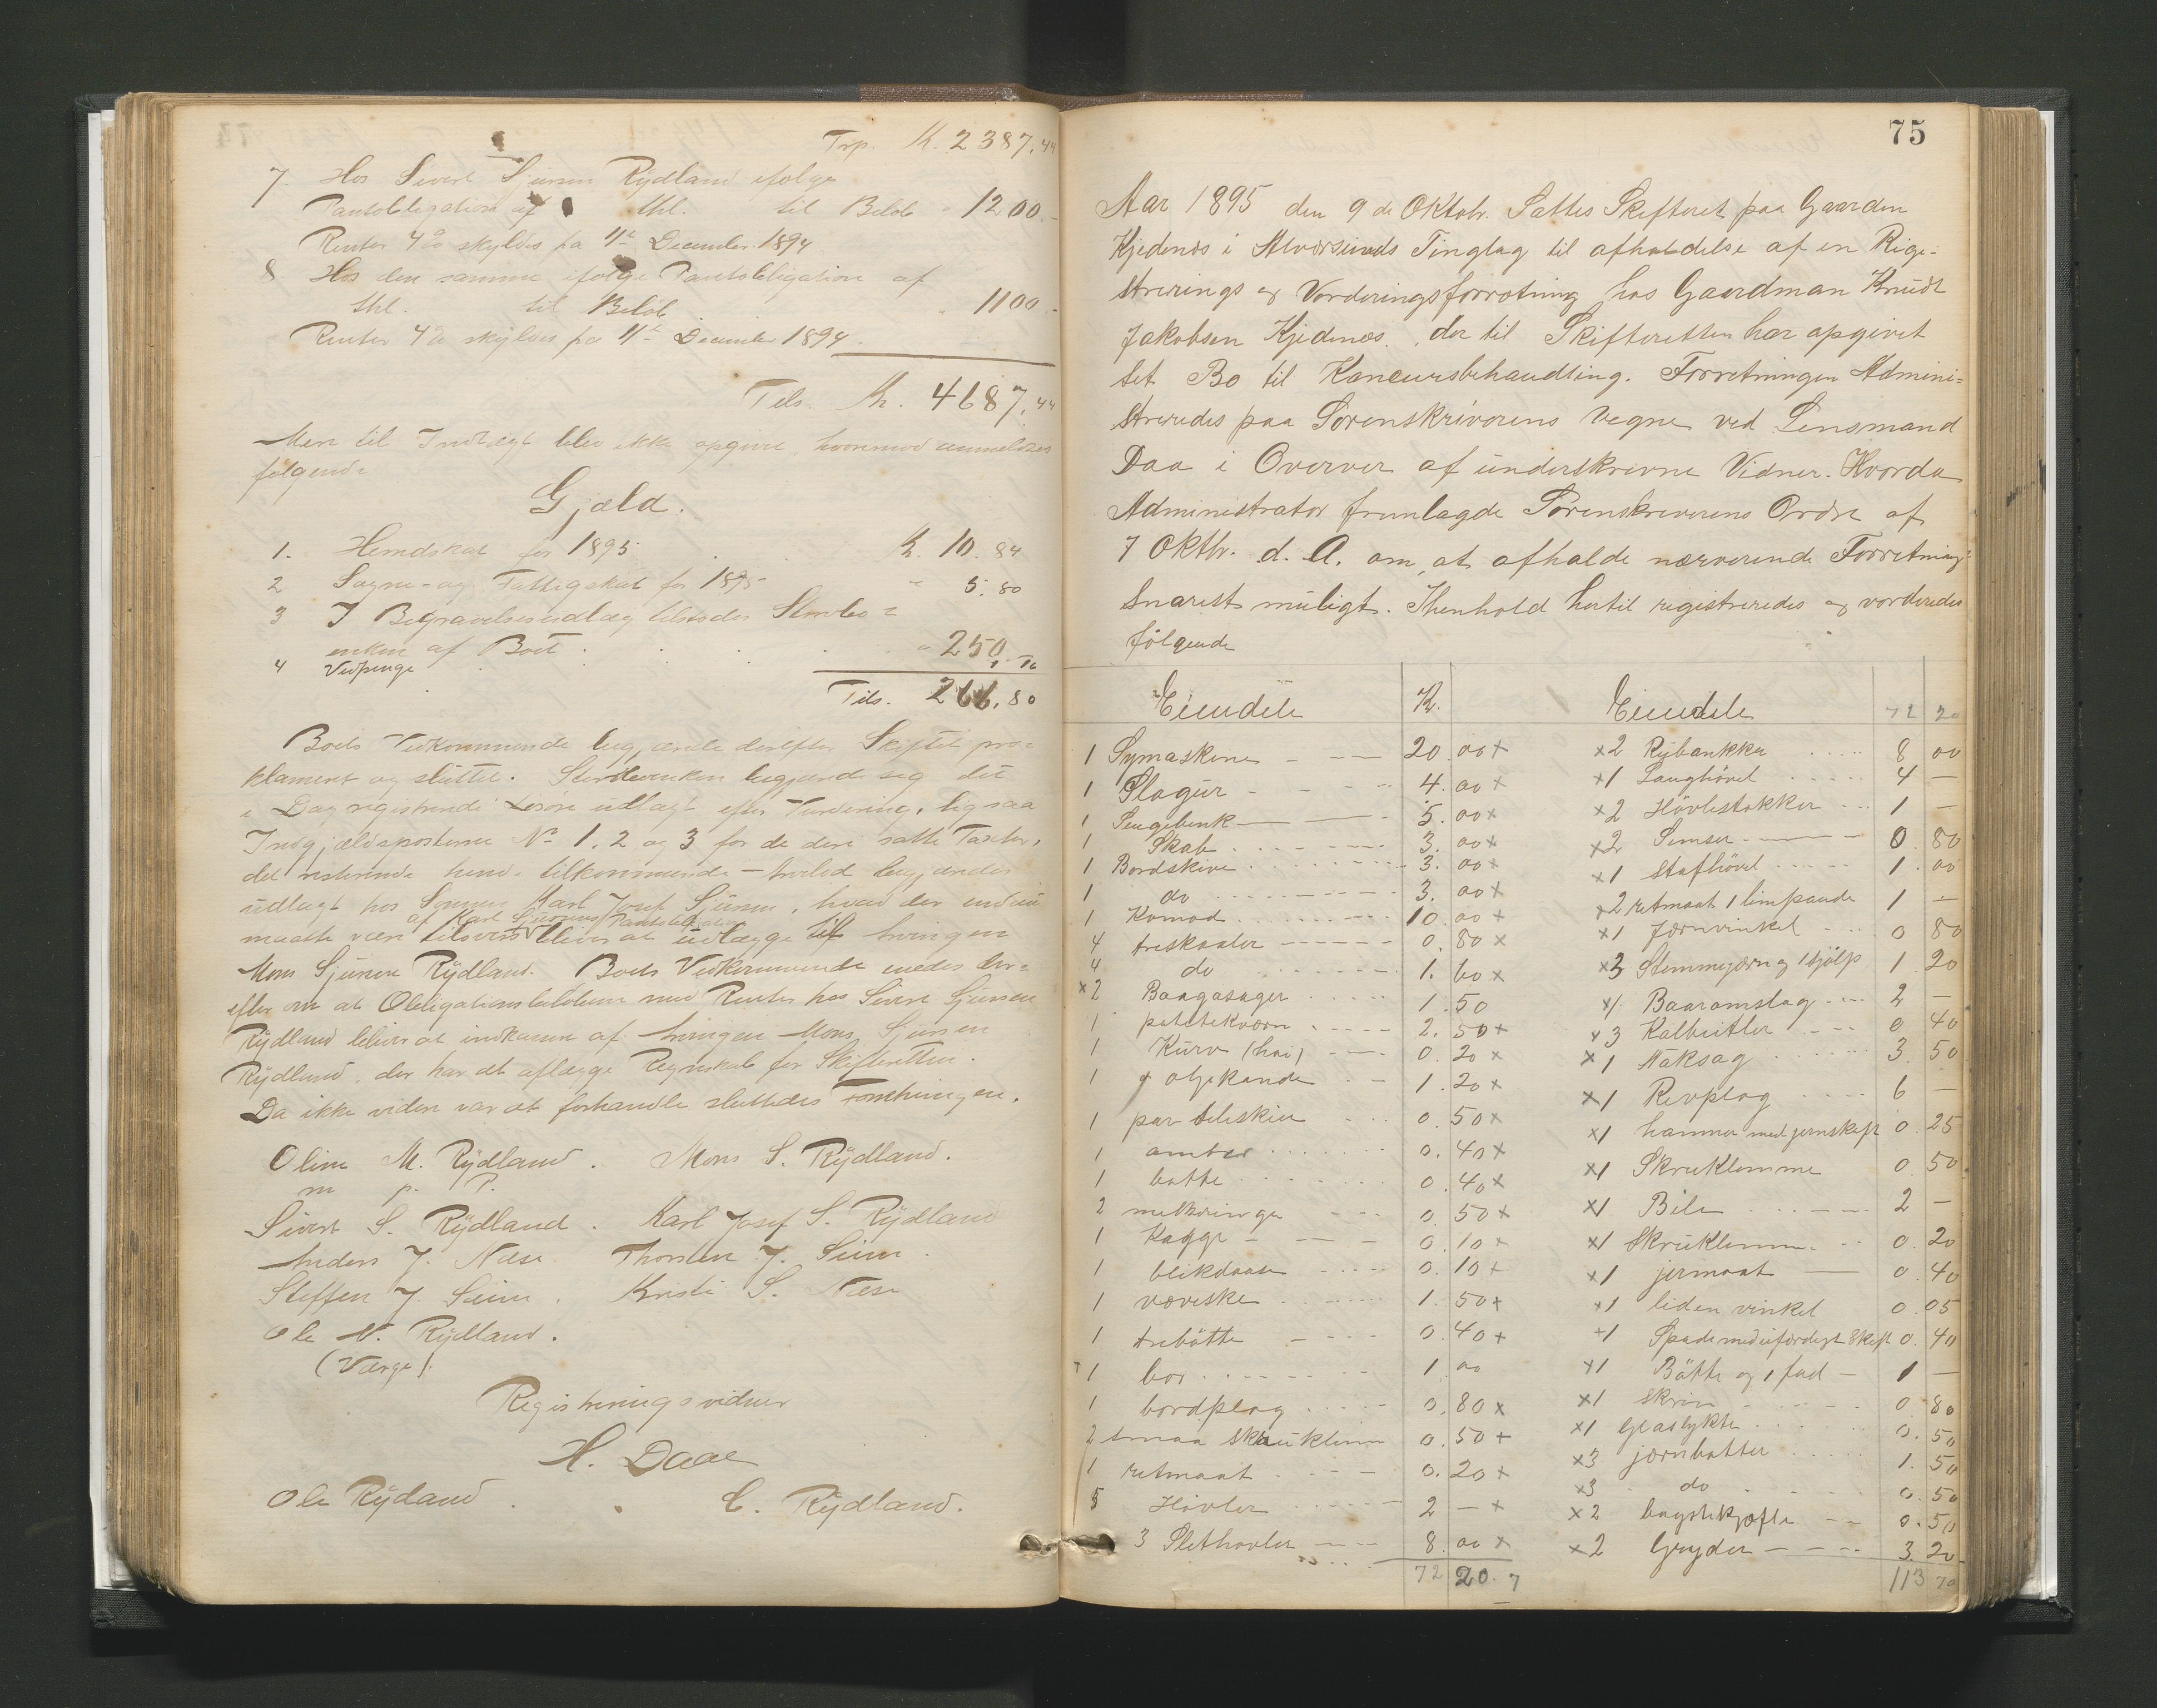 Trp. K. 2387.44
7. Hos Sivert Sjursen Rÿdland ifølge
Pantobligation af thl. til Beløb - 1200.-
Renter 4% skyldes fra 11te December 1894
8 Hos den samme ifølge Pantobligation af
thl. til Beløb " 1100.-
Renter 4% skyldes fra 11te December 1894.
Tils. Kr. 4687.44
Mere til Indtægt blev ikke opgivet, hvorimod anmeldtes
følgende
Gjæld.
1. Herredskat for 1895 K. 10.84
2 Sogne- og Fattigskat for 1895 " 5.80
3 I Begravelsesudlæg tilstodes Sterbo=
enken af Boet " 250
4 Vedpenge
Tils. 266.80
Boets Vedkommende begjærede derefter Skiftet pro=
klameret og sluttet. Sterboenken begjærede sig det
i Dag registrerede Løsøre udlagt efter Vurdering, ligesaa
Indgjældsposterne No 1, 2 og 3 for de dere satte Taxter,
det resterende hende tilkommende - hvilod begjæredes
udlagt hos Sønnen Karl Josef Sjursen, hvad der endnu
af Karl Sjursens Pantobligation
maatte være tilovers bliver at udlægge til Arvingen
Mons Sjursen Rÿdland. Boets Vedkommende enedes der=
efter om at Obligationsbeløbene med Renter hos Sivert Sjursen
Rÿdland bliver at indkasere af Arvingen Mons Sjursen
Rÿdland, der har at aflægge Regnskab for Skifteretten.
Da ikke videre var at forhandle sluttedes Forretningen.
Oline M. Rÿdland. Mons S. Rÿdland.
m p. P.
Sivert S. Rÿdland. Karl Josef S. Rÿdland
Anders J. Næse Thorsten J. Seim.
Steffen J. Seim. Kristi S. Næse
Ole N. Rÿdland.
(Værge).
Registreringsvidner
H. Daae
Ole Rÿdland. C. Rÿdland.
75
Aar 1895 den 9 de Oktobr. Sattes Skifteret paa Gaarden
Kjedenes i Alversunds Tinglag til afholdelse af en Rigi-
strerings og Vorderingsforretning hos Gaardman Knudt
Jakobsen Kjedenes, der til Skifteretten har opgivet
Set Bo til Konkursbehandling. Forretningen Admini=
streredes paa Sorenskriverens Vegne ved Lensmand
Daa i Overver af underskrevne Vidner. Hvorda
Administrator fremlagde Sorenskriverens Ordre af
7 Oktbr. d. A. om, at afholde nærverende Forretning
Snarest muligt. Ihenhold hertil registreredes og vorderedes
følgende
Eiendele K. Eiendele 72 20
1 Symaskine 20.00 x x2 Rybankker 8 00
1 Slagur 4.00 x x1 Langhövel 4 —
1 Sengebenk 5.00 x x2 Hövlestokker 1 —
1 Skab 3.00 x x2 Simser 0.80
1 Bordskive 3.00 x x1 Stafhövel 1.00
1 do 3.00 x x2 retmaat 1 limpande 1 —
1 Komod 10.00 x x1 Jærnvinkel 0 80
4 treskaaler 0.80 x x3 Stemmejærn og 1 Hjölp 1 20
4 do 1.60 x x1 Baaromslag 2 —
x2 Baagasager 1.50 x3 Kalbeitler 0 40
1 potetekvœrn 2.50 x x1 Staksag 3.50
1 Kurv (hoi) 0.20 x x1 Revplog 6 —
1 oljekande 1.20 x x1 hammer med jernskaft 0.25
1 par teleskier 0.50 x x1 Skrueklemme 0.50
1 amber 0.40 x x1 Bile 2 —
1 bøtte 0.40 x x1 Skrueklemme 0.20
2 melkeringe 0.50 x x1 jermaat 0.40
1 Kagge 0.10 x x1 liden vinkel 0.05
1 blikdaase 0.10 x x1 Spade med uferdigt Skaft 0.40
1 væveske 1.50 x x1 Bötte og 1 fad 1 —
1 trebötte 0.40 x x1 Skrin 0.80
1 bor 1.00 x1 Glaslykte 0.50
1 bordplag 0.80 x x3 jœrnbøtter 1.50
2 smaa Skrueklemm 0.50 x x3 do 0.50
1 retmaat 0.20 x x2 bagstekjæfle 0.50
5 Hövler 2 — x x2 Gryder 3.20
3 Slethovler 8.00 x
72 20. 7 113 70